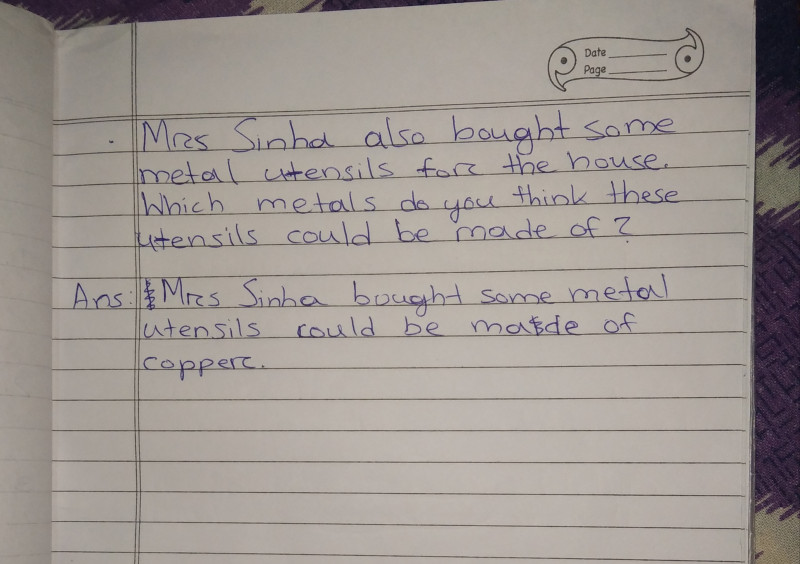 Date
Page
. Mrs Sinha also bought some
metal utensils for the house.
Which metals do you think these
utensils could be made of ?
Ans: Mrs Sinha bought some metal
utensils could be made of
copper.